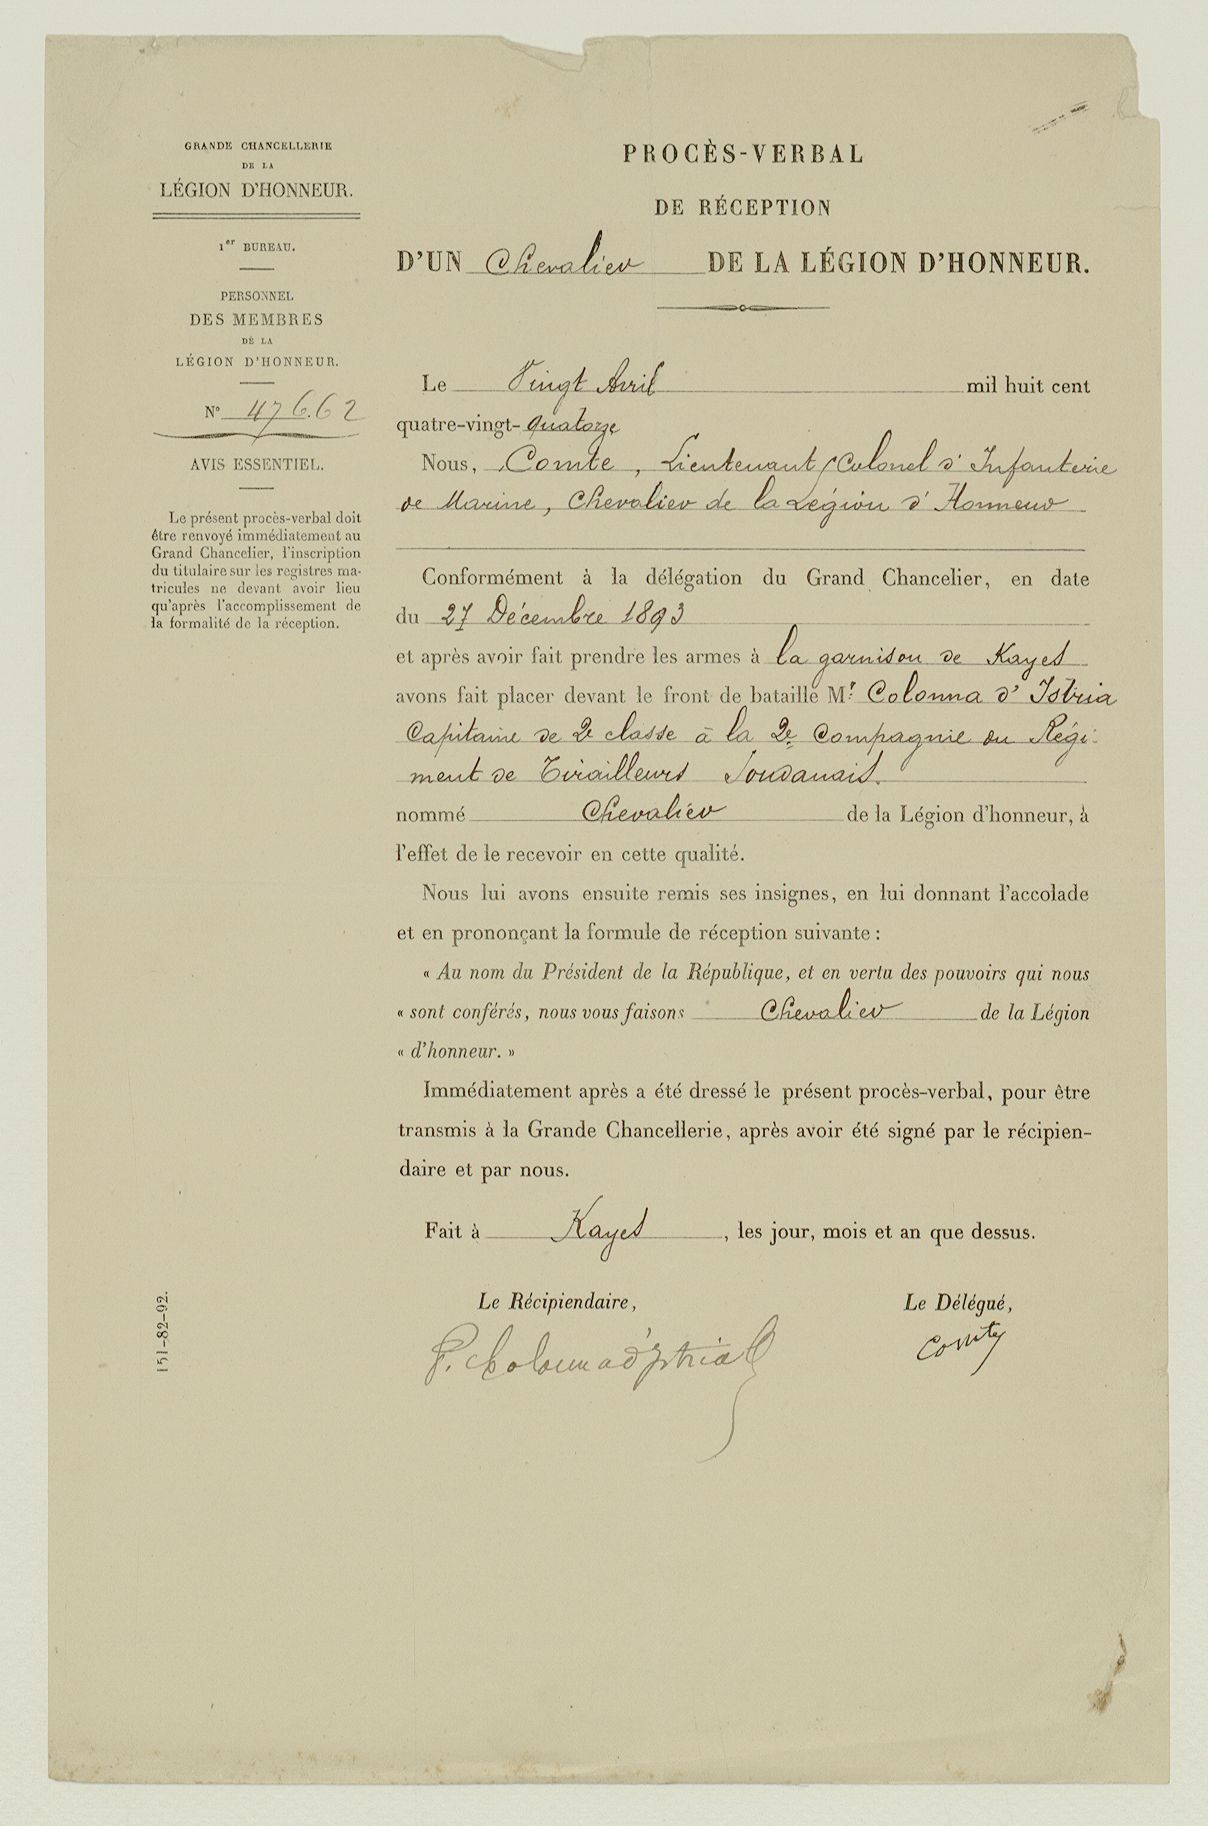 GRANDE CHANCELLERIE
DE LA
LÉGION D'HONNEUR.
1er BUREAU.
PERSONNEL
DES MEMBRES
DE LA
LÉGION D'HONNEUR.
N° 47662
AVIS ESSENTIEL.
Le présent procès-verbal doit
être renvoyé immédiatement au
Grand Chancelier, l'inscription
du titulaire sur les registres ma-
tricules ne devant avoir lieu
qu'après l'accomplissement de
la formalité de la réception.
151-82-92.
PROCÈS-VERBAL
DE RÉCEPTION
D'UN Chevalier DE LA LÉGION D'HONNEUR.
Le Vingt Avril mil huit cent
quatre-vingt-quatorze
Nous, Comte, Lieutenant Colonel d'Infanterie
de Marine, Chevalier de la Légion d'Honneur
Conformément à la délégation du Grand Chancelier, en date
du 27 Décembre 1893
et après avoir fait prendre les armes à la garnison de Kayes
avons fait placer devant le front de bataille Mr Colonna d'Istria
Capitaine de 2e classe à la 2e Compagnie du Régi-
ment de Tirailleurs Soudanais.
nommé Chevalier de la Légion d'honneur, à
l'effet de le recevoir en cette qualité.
Nous lui avons ensuite remis ses insignes, en lui donnant l'accolade
et en prononçant la formule de réception suivante :
« Au nom du Président de la République, et en vertu des pouvoirs qui nous
« sont conférés, nous vous faisons Chevalier de la Légion
« d'honneur. »
Immédiatement après a été dressé le présent procès-verbal, pour être
transmis à la Grande Chancellerie, après avoir été signé par le récipien-
daire et par nous.
Fait à Kayes, les jour, mois et an que dessus.
Le Récipiendaire, Le Délégué,
P. Colonna d'Istria Comte